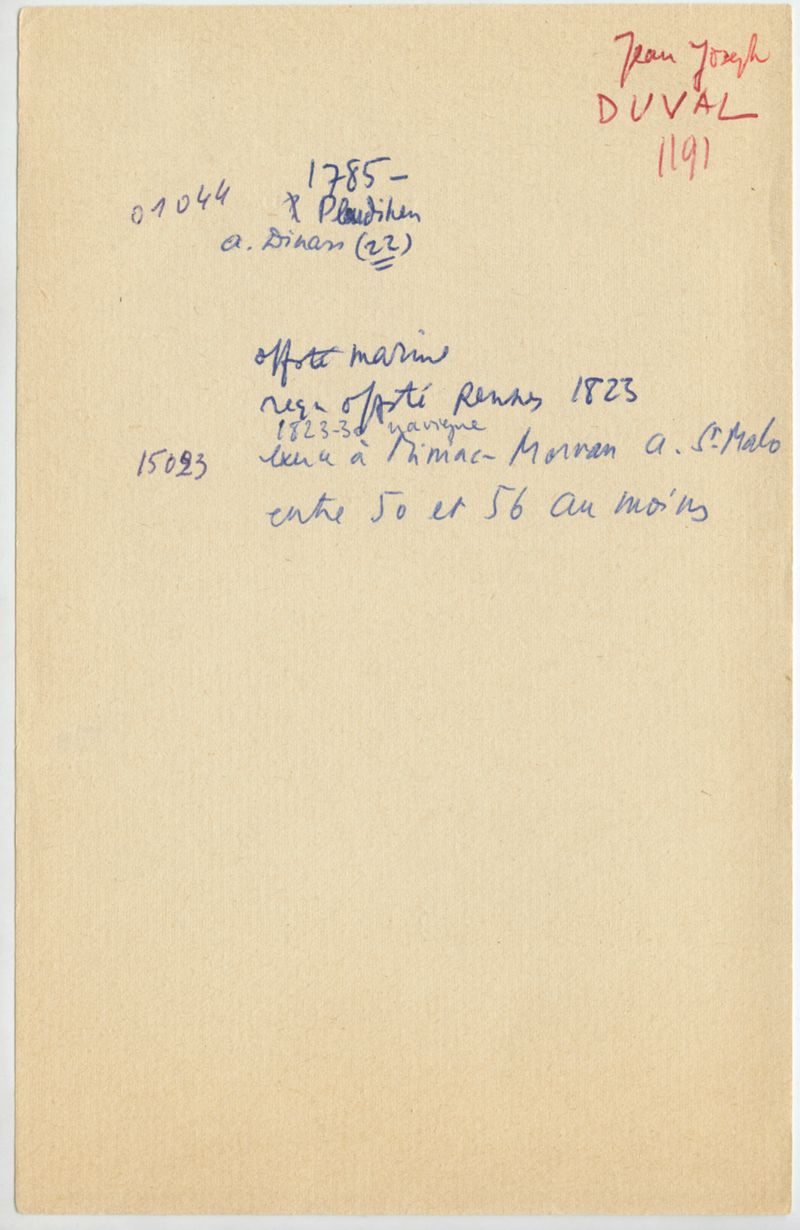 Jean Joseph
DUVAL
1191
1785-
01044 x Pleudihen
a. Dinan (22)
offsté marine
reçu offsté Rennes 1823
1823-30 navigue
15023 exerce à Miniac-Morvan a. St-Malo
entre 50 et 56 au moins